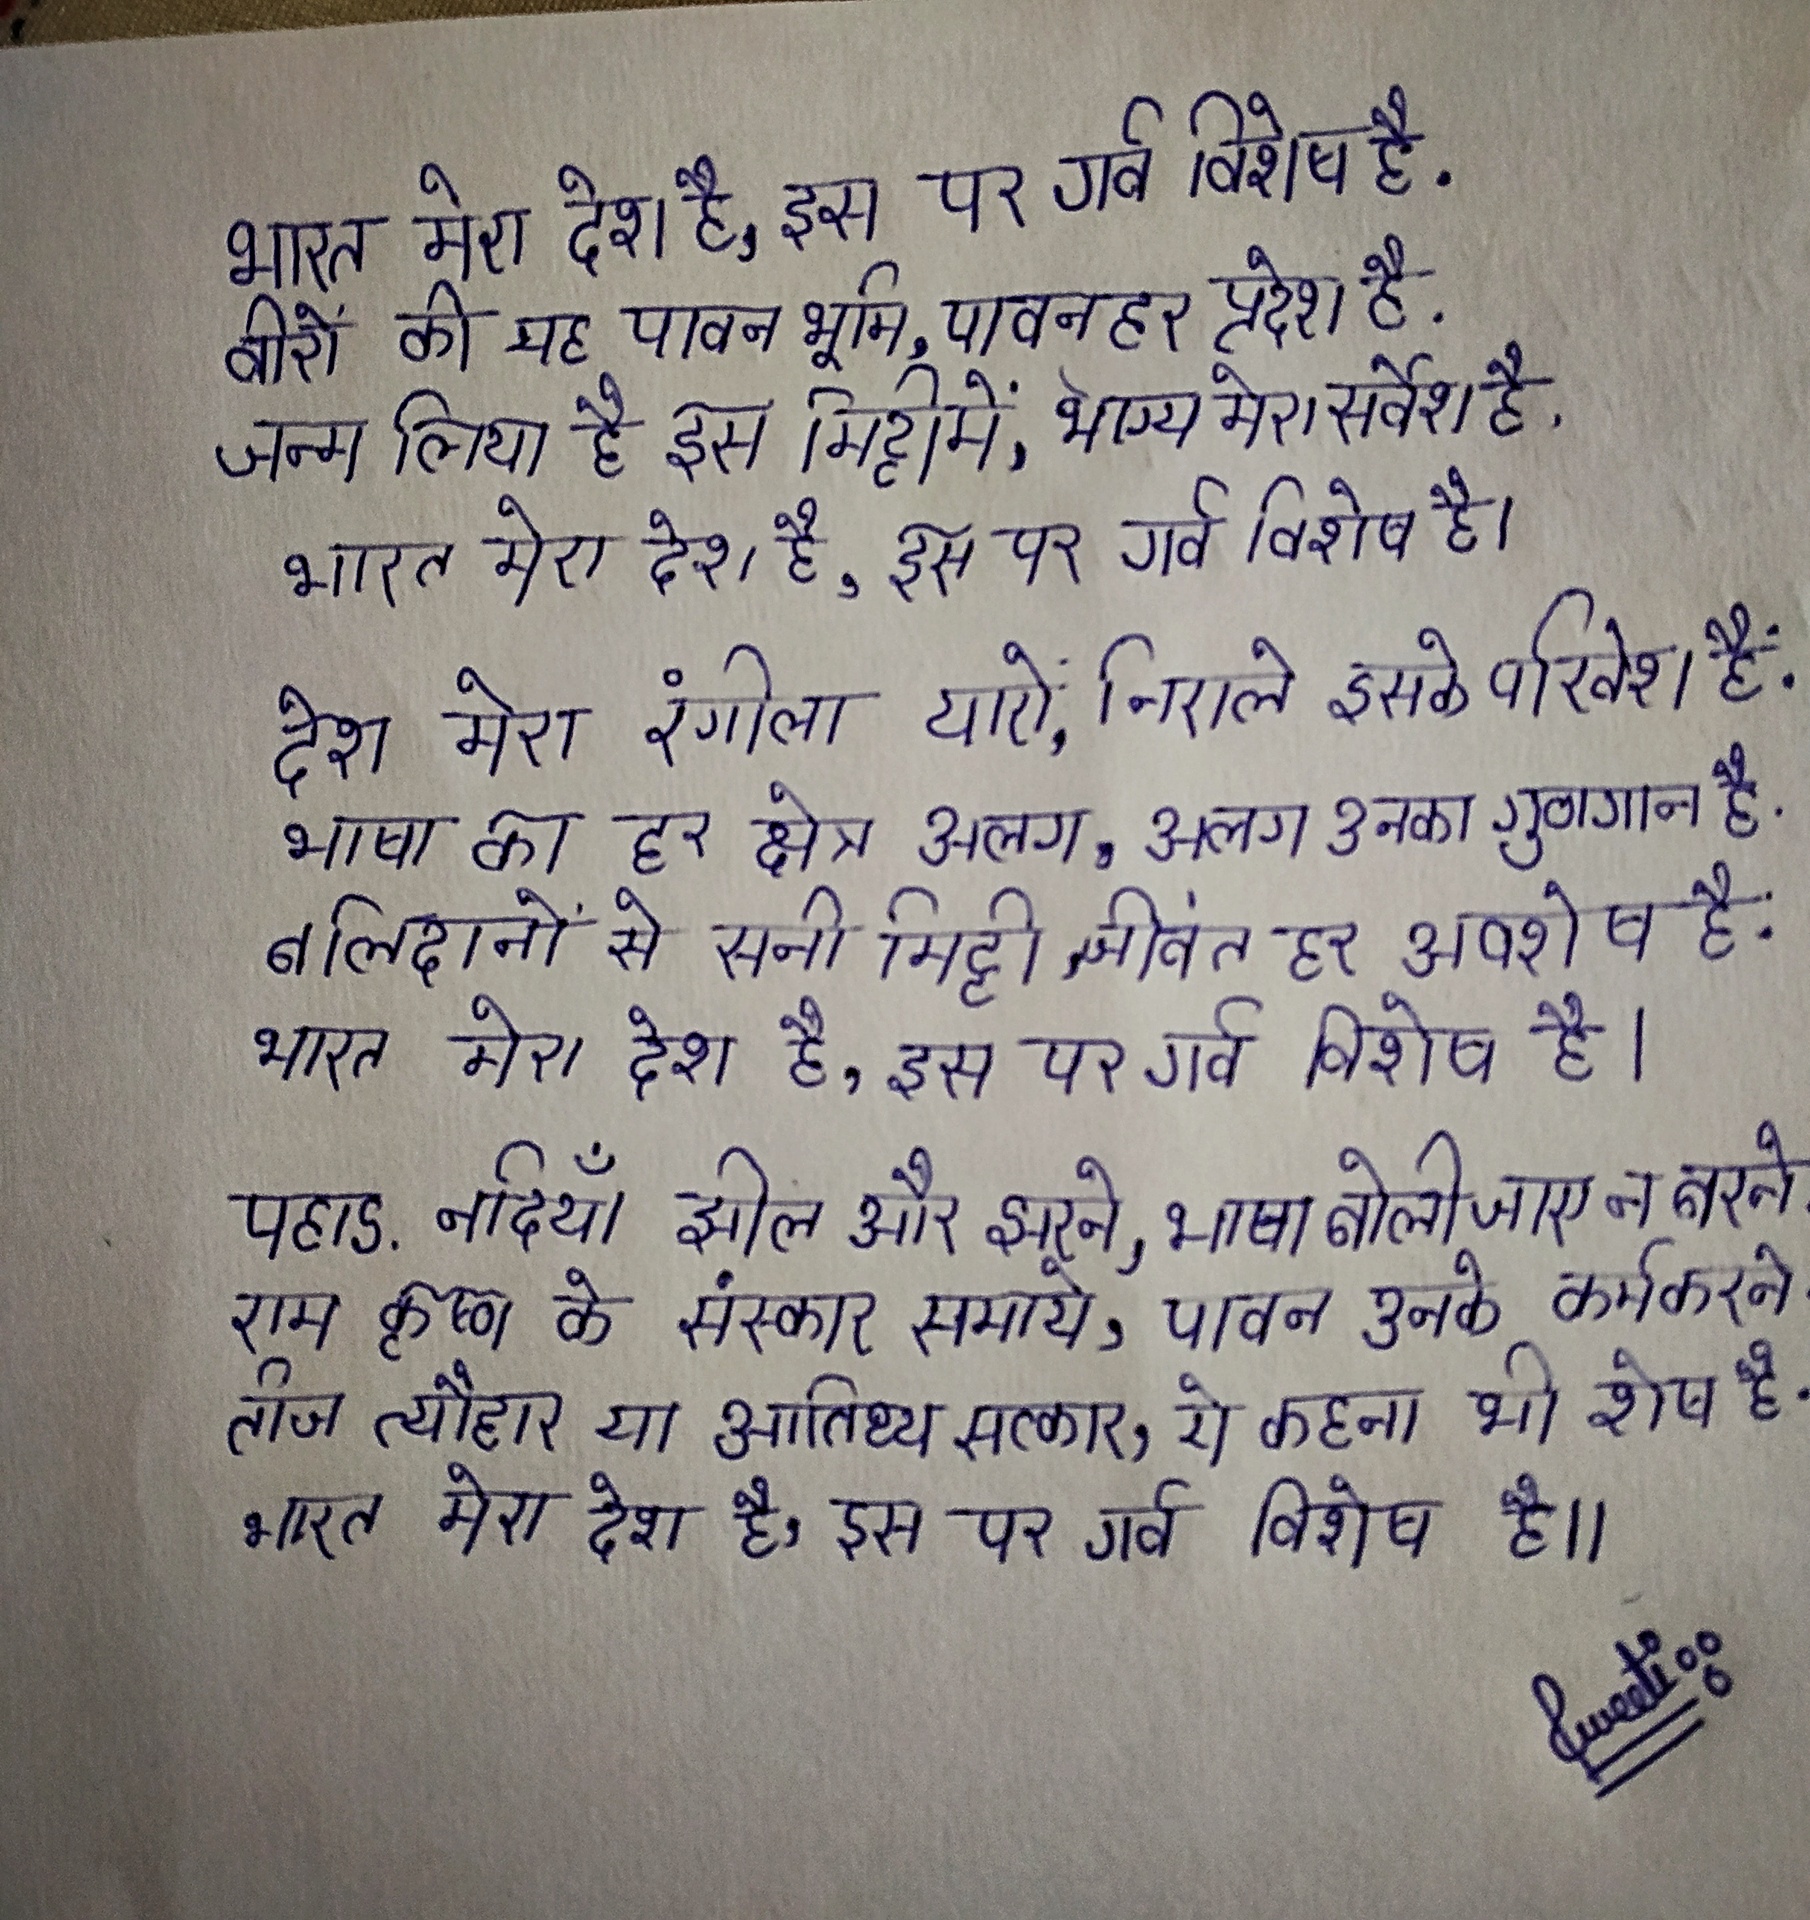 भारत मेरा देश है, इस पर गर्व विशेष है.
वीरों की यह पावन भूमि, पावन हर प्रदेश है.
जन्म लिया है इस मिट्टी में, भाग्य मेरा सर्वेश है.
भारत मेरा देश है, इस पर गर्व विशेष है।
देश मेरा रंगीला यारों, निराले इसके परिवेश हैं.
भाषा का हर क्षेत्र अलग, अलग उनका गुणगान है.
बलिदानों से सनी मिट्टी, जीवंत हर अवशेष है.
भारत मेरा देश है, इस पर गर्व विशेष है।
पहाड. नदियाँ झील और झरने, भाषा बोली जाए न बरने.
राम कृष्ण के संस्कार समाये, पावन उनके कर्म करने.
तीज त्यौहार या आतिथ्य सत्कार, ये कहना भी शेष है.
भारत मेरा देश है, इस पर गर्व विशेष है।।
Sweeti